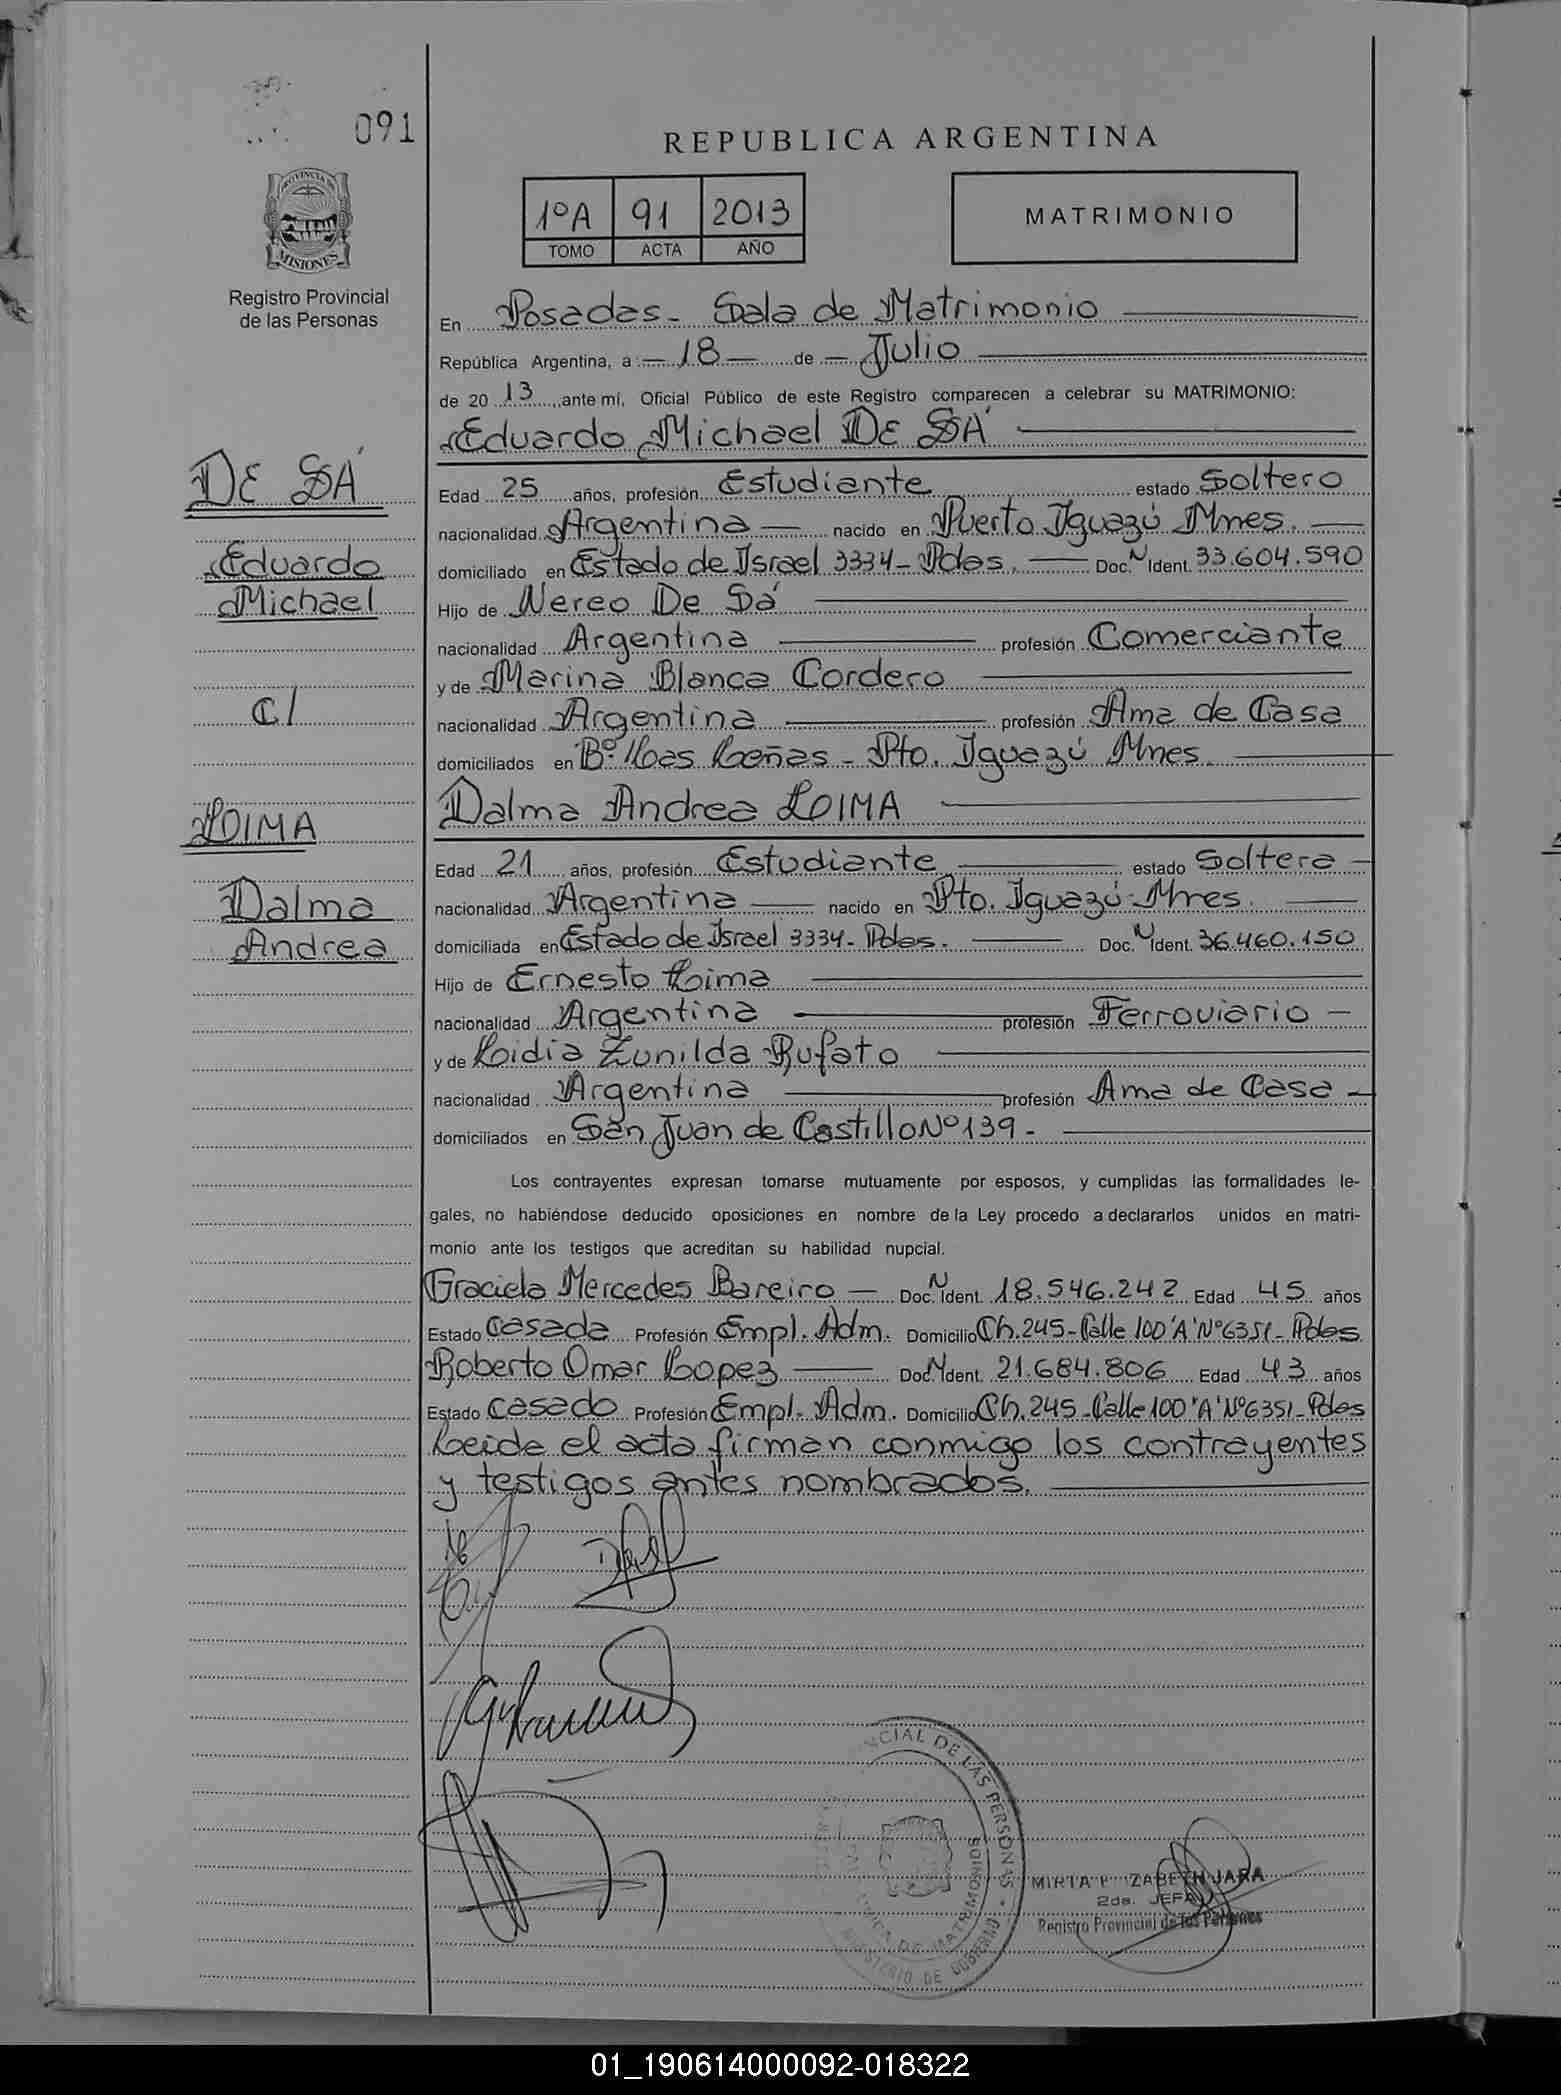 091
REPUBLICA ARGENTINA
1ºA 91 2013
TOMO ACTA AÑO
MATRIMONIO
PROVINCIA DE
MISIONES
Registro Provincial
de las Personas
En Posadas - Sala de Matrimonio
República Argentina, a 18 de Julio
de 20 13 ante mí, Oficial Público de este Registro comparecen a celebrar su MATRIMONIO:
Eduardo Michael DE SÁ
DE SÁ
Eduardo
Michael
C/
LOIMA
Dalma
Andrea
Edad 25 años, profesión Estudiante estado Soltero
nacionalidad Argentina nacido en Puerto Iguazú Mnes.
domiciliado en Estado de Israel 3334 - Pdas. Doc. N Ident. 33.604.590
Hijo de Nereo De Sá
nacionalidad Argentina profesión Comerciante
y de Marina Blanca Cordero
nacionalidad Argentina profesión Ama de Casa
domiciliados en Bº Las Leñas - Pto. Iguazú Mnes.
Dalma Andrea LOIMA
Edad 21 años, profesión Estudiante estado Soltera
nacionalidad Argentina nacido en Pto. Iguazú - Mnes.
domiciliada en Estado de Israel 3334 - Pdas. Doc. N Ident. 36.460.150
Hijo de Ernesto Loima
nacionalidad Argentina profesión Ferroviario
y de Lidia Zunilda Rufato
nacionalidad Argentina profesión Ama de Casa
domiciliados en San Juan de Castillo Nº 139 -
Los contrayentes expresan tomarse mutuamente por esposos, y cumplidas las formalidades le-
gales, no habiéndose deducido oposiciones en nombre de la Ley procedo a declararlos unidos en matri-
monio ante los testigos que acreditan su habilidad nupcial.
Graciela Mercedes Bareiro Doc. N Ident. 18.546.242 Edad 45 años
Estado casada Profesión Empl. Adm. Domicilio Ch. 245 - Calle 100 'A' Nº 6351 - Pdas
Roberto Omar Lopez Doc. N Ident. 21.684.806 Edad 43 años
Estado casado Profesión Empl. Adm. Domicilio Ch. 245 - Calle 100 'A' Nº 6351 - Pdas
Leida el acta firman conmigo los contrayentes
y testigos antes nombrados.
NCIAL DE LAS PERSONAS
DE MATRIMONIOS
DE GOBIERNO
MIRTA ZABETH JARA
2da. JEFA
Registro Provincial de las Personas
01_190614000092-018322